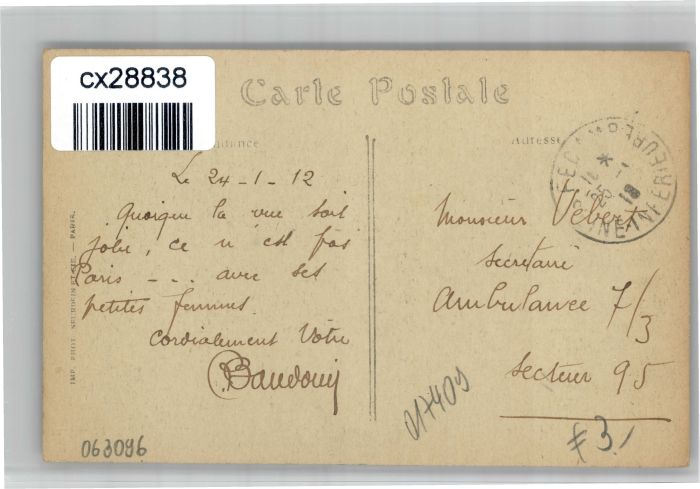 cx28838
Carte Postale
Adresse
FECAMP * SEINE-INFERIEURE
Le 24-1-12
Quoique la vue soit
jolie, ce n'est pas
Paris - - - avec ses
petites femmes.
Cordialement Vôtre
Baudouin
Monsieur Vebert
Secrétaire
Ambulance 7/3
Secteur 95
IMP. PHOT. NEURDEIN ET CIE. — PARIS.
063096
017409
£3.